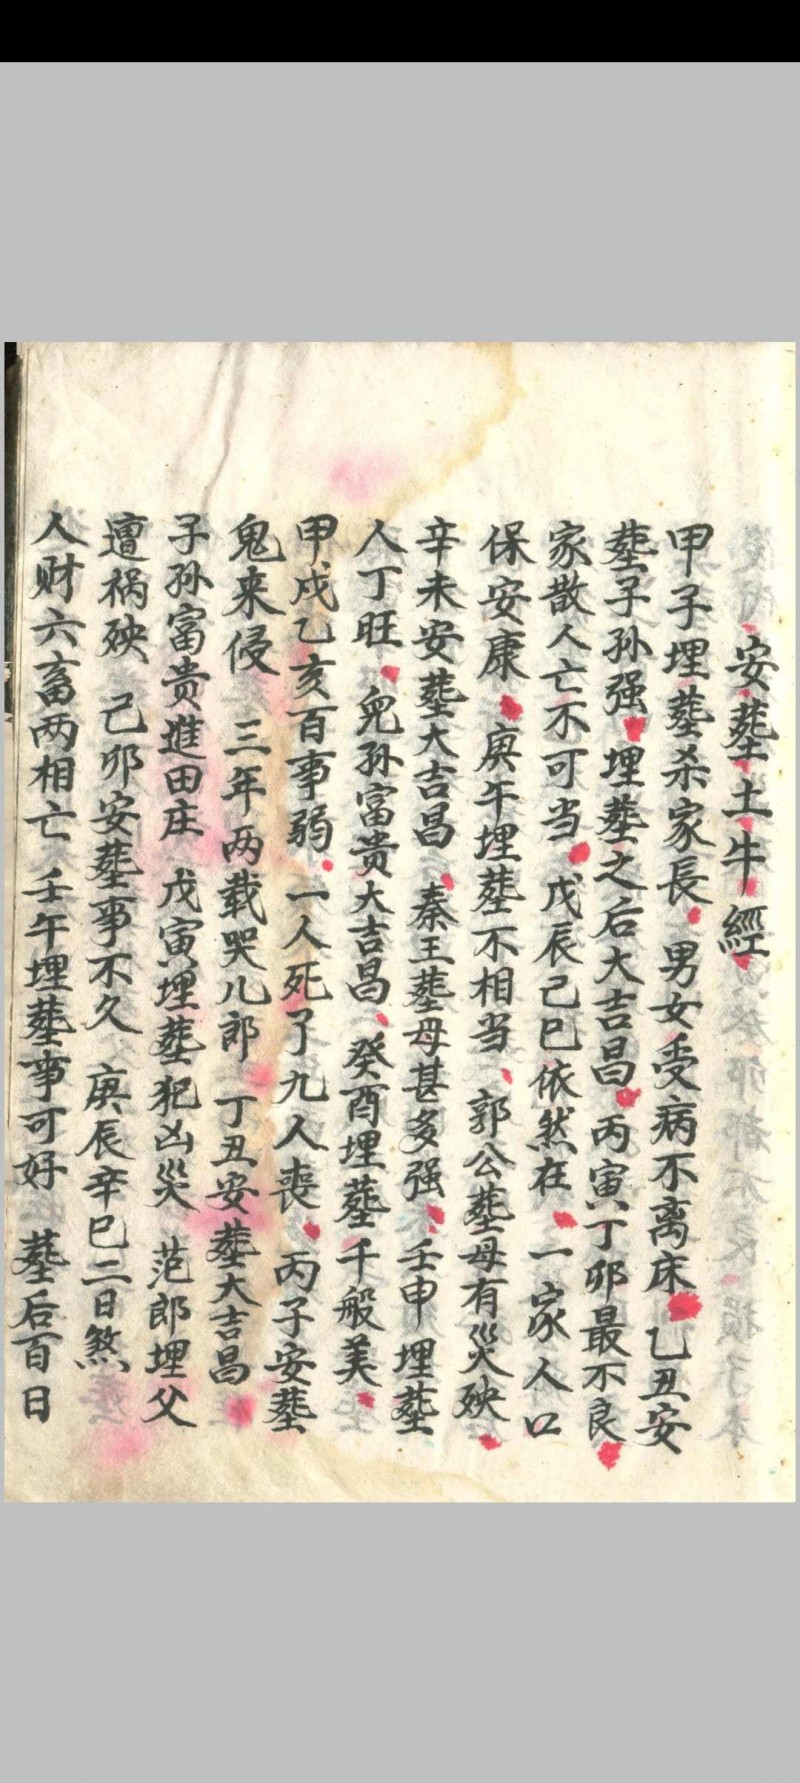 安葬土牛經
甲子埋葬杀家長 男女受病不离床 乙丑安
葬子孙强 埋葬之后大吉昌 丙寅丁卯最不良
家散人亡不可当 戊辰己巳依然在 一家人口
保安康 庚午埋葬不相当 郭公葬母有災殃
辛未安葬大吉昌 秦王葬母甚多强 壬申埋葬
人丁旺 兒孙富贵大吉昌 癸酉埋葬千般美
甲戍乙亥百事弱 一人死了九人喪 丙子安葬
鬼来侵 三年两载哭儿郎 丁丑安葬大吉昌
子孙富贵進田庄 戊寅埋葬犯凶災 范郎埋父
遭祸殃 己卯安葬事不久 庚辰辛巳二日煞
人财六畜两相亡 壬午埋葬事可好 葬后百日